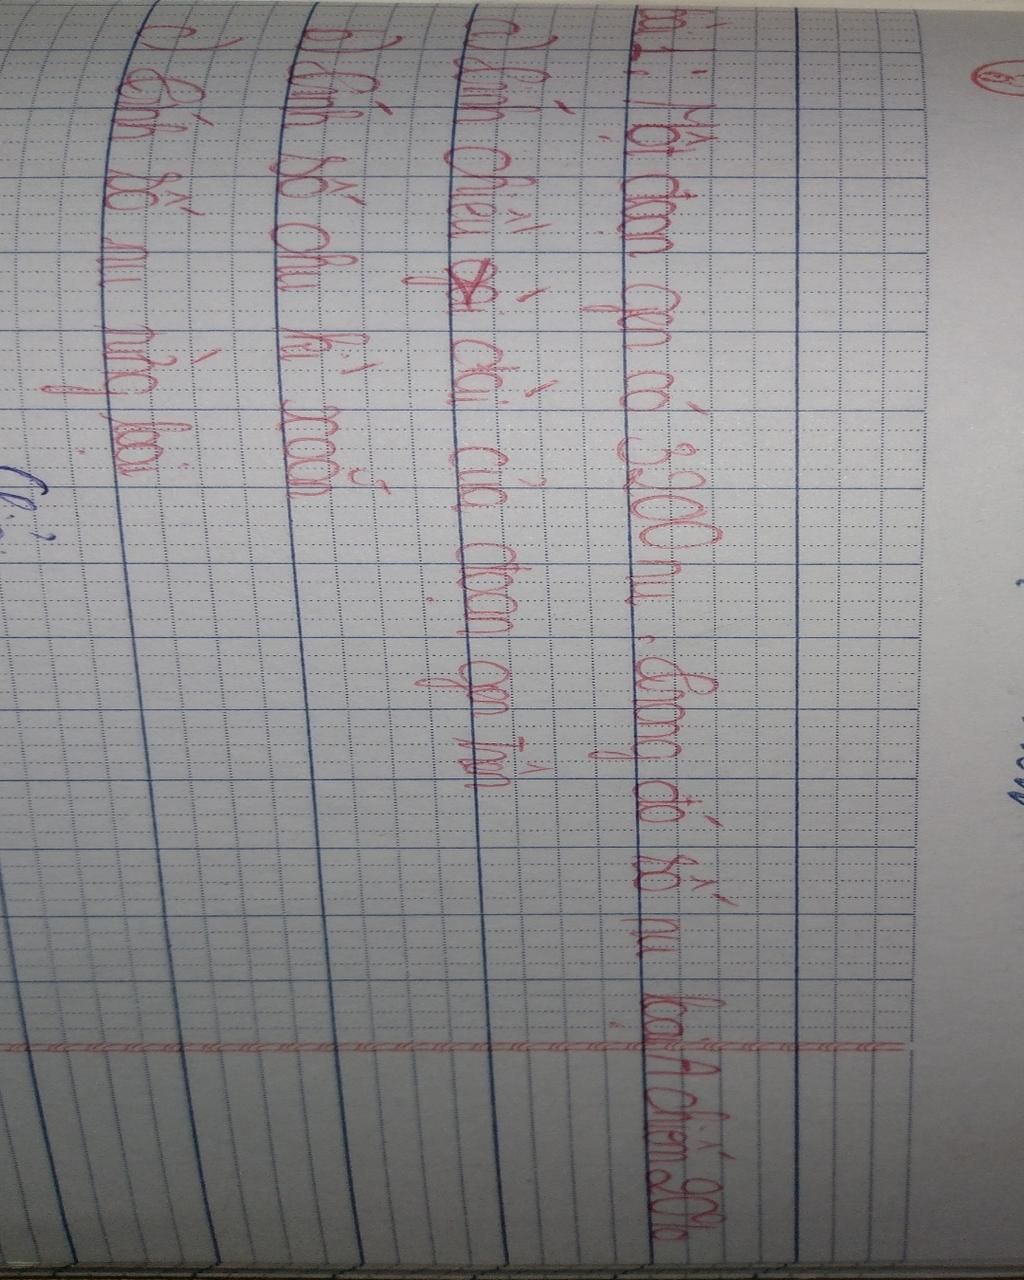 Bài 1: Một đoạn gen có 3200 nu. Trong đó số nu loại A chiếm 20%
a) Tính chiều dài của đoạn gen trên
b) Tính số chu kì xoắn
c) Tính số nu từng loại